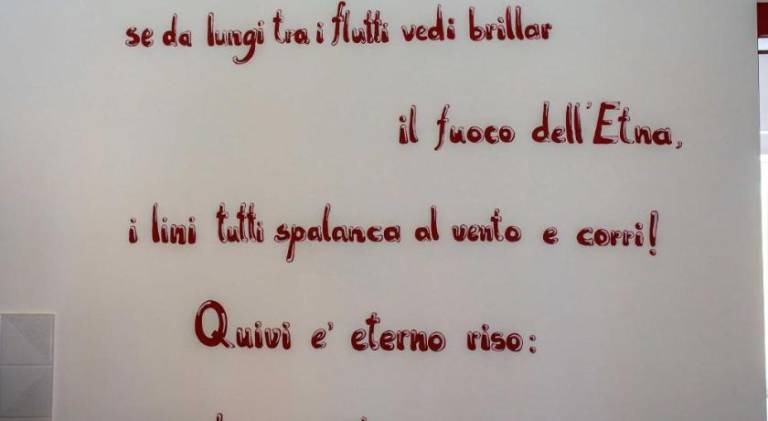 se da lungi tra i flutti vedi brillar
il fuoco dell'Etna,
i lini tutti spalanca al vento e corri!
Quivi e' eterno riso: